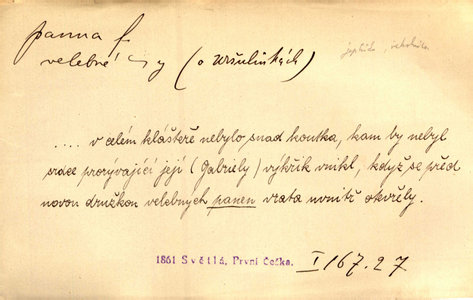 panna f.
velebné
(o Uršulinkách)
.... v celém klášteře nebylo snad koutka, kam by nebyl
srdce prorývající její (Gabriely) výkřik vnikl, když se před
novou družkou velebných panen vrata uvnitř otevřely.
1861 Světlá, První Češka. I 167.27